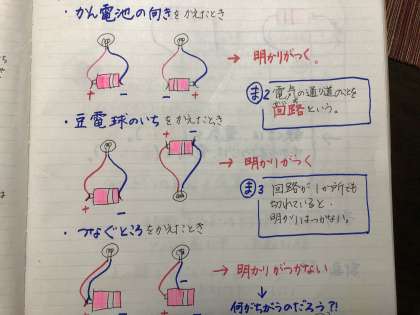 ・かん電池の向きをかえたとき
→ 明かりがつく。
+ - + -
ま2 電気の通り道のことを
回路という。
・豆電球のいちをかえたとき
→ 明かりがつく
+ -
ま3 回路が1か所でも
切れていると、
明かりはつかない。
・つなぐところをかえたとき
→ 明かりがつかない
↓
何がちがうのだろう?!